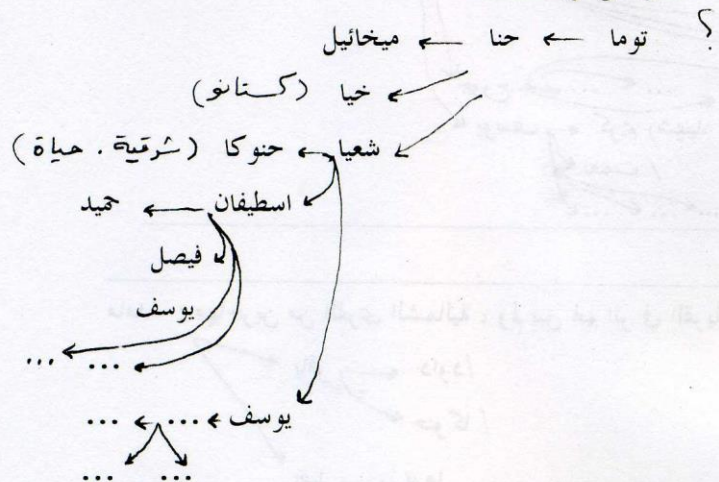 ؟ توما ← حنا ← ميخائيل
خيا (كستانو)
شعيا ← حنوكا (شرقية . حياة)
اسطيفان ← حميد
فيصل
يوسف
... ...
يوسف ← ... ← ...
... ...